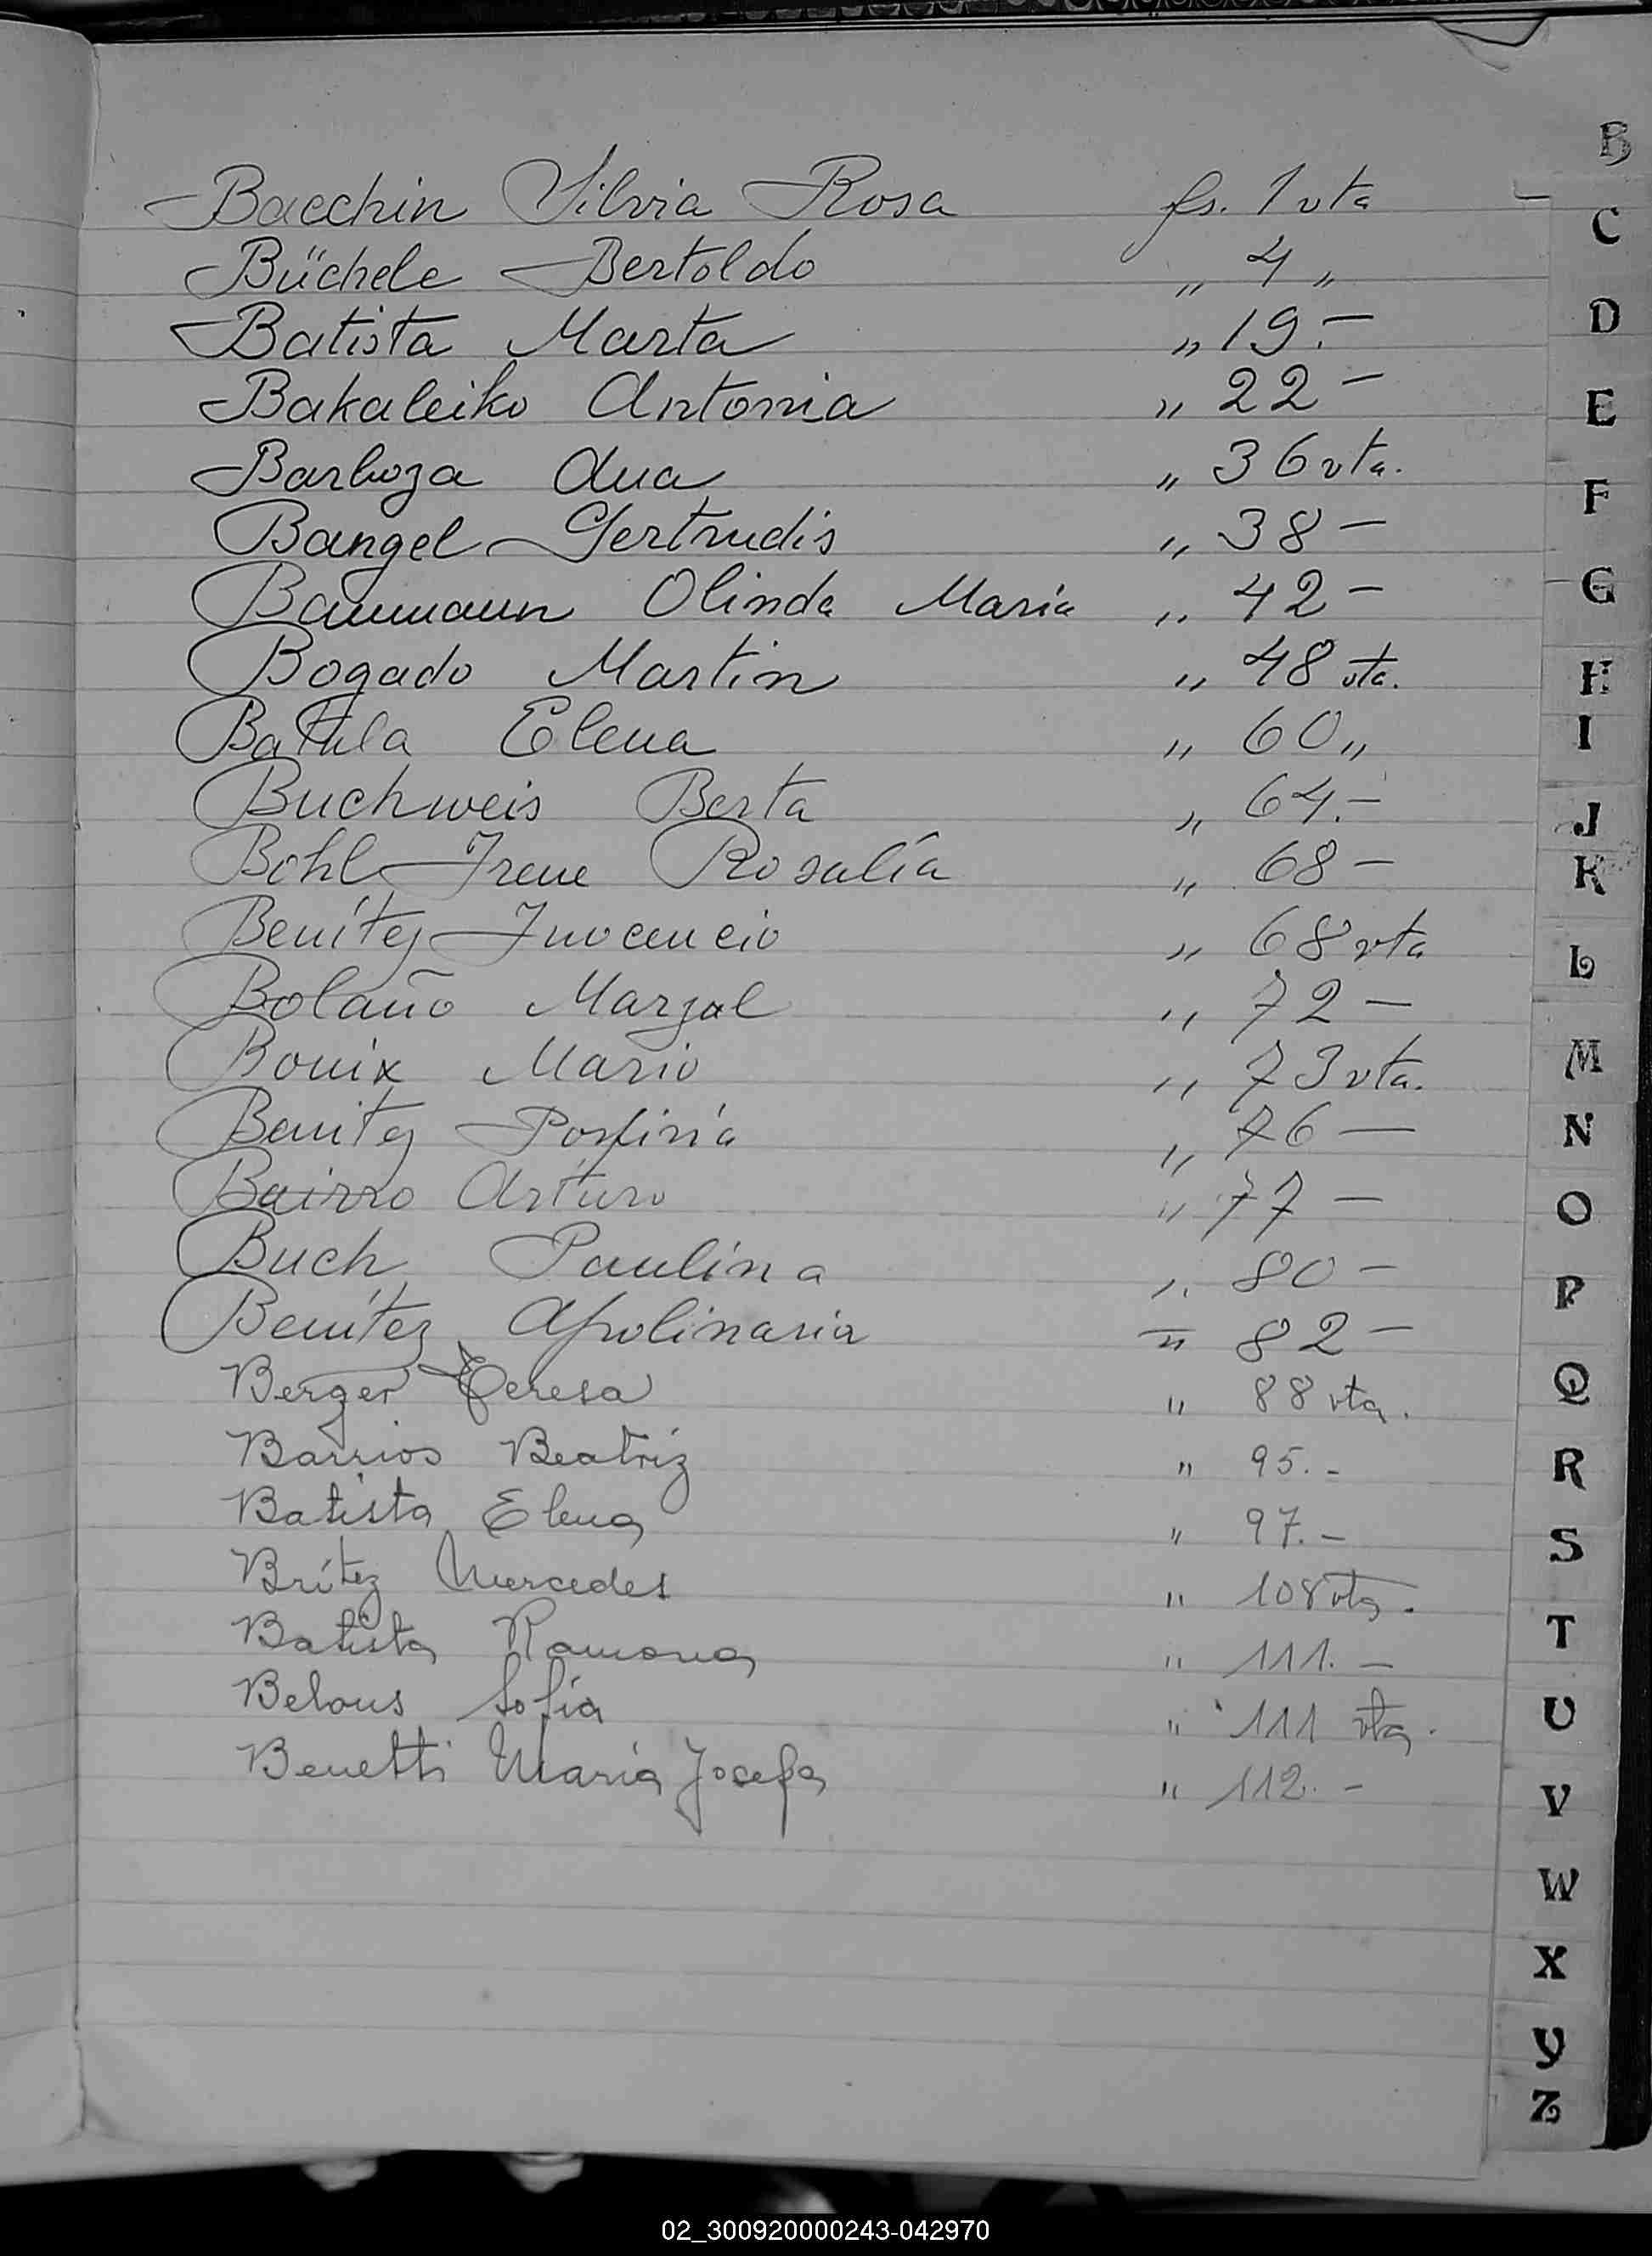 B
Bacchin Silvia Rosa fs. 1 vta
Büchele Bertoldo „ 4 „
Batista Marta „ 19.-
Bakaleiko Antonia „ 22 -
Barboza Ana „ 36 vta.
Bangel Gertrudis „ 38 -
Baumann Olinda Maria „ 42 -
Bogado Martin „ 48 vta.
Elena „ 60 „
Buchweis Berta „ 64.-
Bohl Irene Rosalía „ 68 -
Benítez Inocencio „ 68 vta
Bolaño Marzal „ 72 -
Bouix Mario „ 73 vta.
Benitez Porfiria „ 76 -
Bairro Arturo „ 77 -
Buch Paulina „ 80 -
Benítez Apolinaria „ 82 -
Berger Teresa „ 88 vta.
Barrios Beatriz „ 95.-
Batista Elena „ 97.-
Brítez Mercedes „ 108 vta.
Batista Ramona „ 111.-
Belous Sofía „ 111 vta.
Benetti María Josefa „ 112.-
C
D
E
F
G
H
I
J
K
L
M
N
O
P
Q
R
S
T
U
V
W
X
Y
Z
02_300920000243-042970